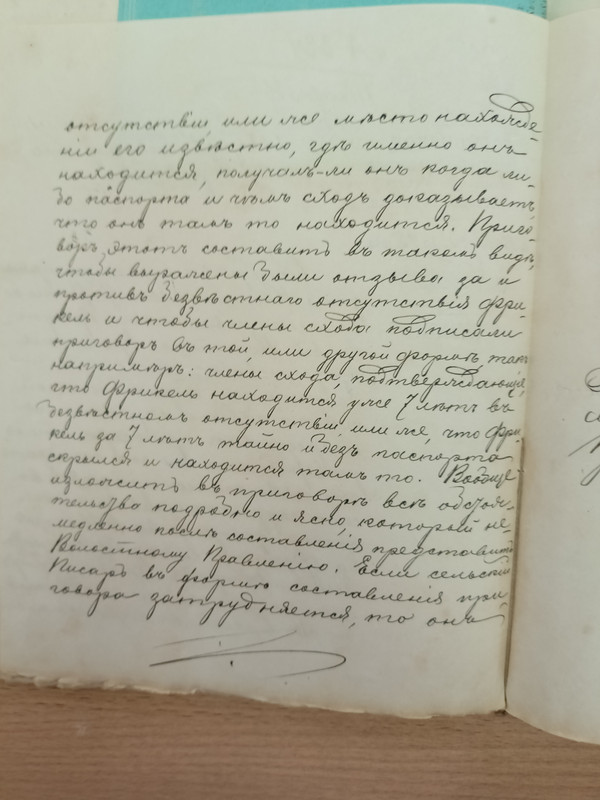 отсутствіи, или же мѣстонахожде-
ніи его извѣстно, гдѣ именно онъ
находится, получалъ-ли онъ когда ли-
бо паспорта и чѣмъ сходъ доказываетъ,
что онъ тамъ то находится. Приго-
воръ этотъ составить въ такомъ видѣ,
чтобы выражены были отзывы за и
противъ безвѣстнаго отсутствія Фри-
кель и чтобы члены схода подписали
приговоръ въ той, или другой формѣ такъ
напримѣръ: члены схода, подтверждающіе,
что Фрикель находится уже 7 лѣтъ въ
безвѣстномъ отсутствіи, или же, что Фри-
кель за 7 лѣтъ тайно и безъ паспорта
скрылся и находится тамъ то. Вообще
изложить въ приговорѣ всѣ обстоя-
тельства подробно и ясно, который не-
медленно послѣ составленія представить
Волостному Правленію. Если сельскій
Писарь въ формѣ составленія при-
говора затрудняется, то онъ